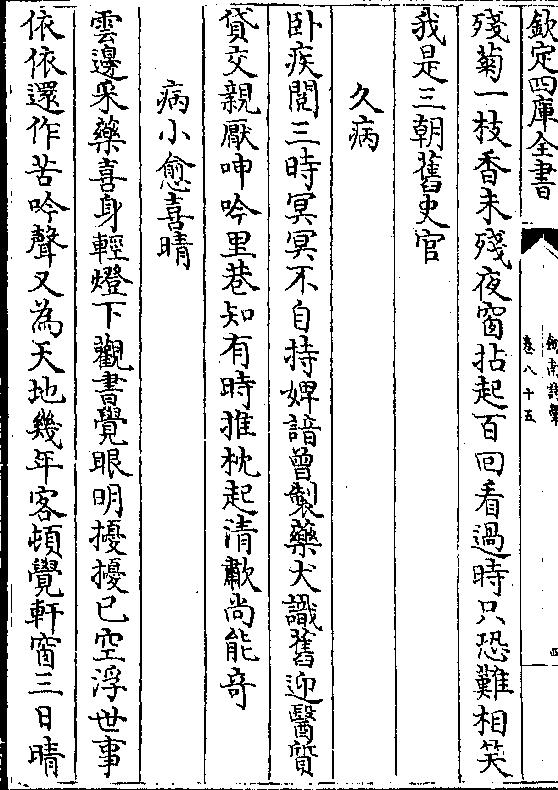 欽定四庫全書
劍南詩藁
卷八十五
四
殘菊一枝香未殘夜窗拈起百回看過時只恐難相笑
我是三朝舊史官
久病
卧疾閲三時冥冥不自持婢諳曾製藥犬識舊迎醫質
貸交親厭呻吟里巷知有時推枕起清歗尚能竒
病小愈喜晴
雲邊采藥喜身輕燈下觀書覺眼明擾擾已空浮世事
依依還作苦吟聲又為天地幾年客頓覺軒窗三日晴